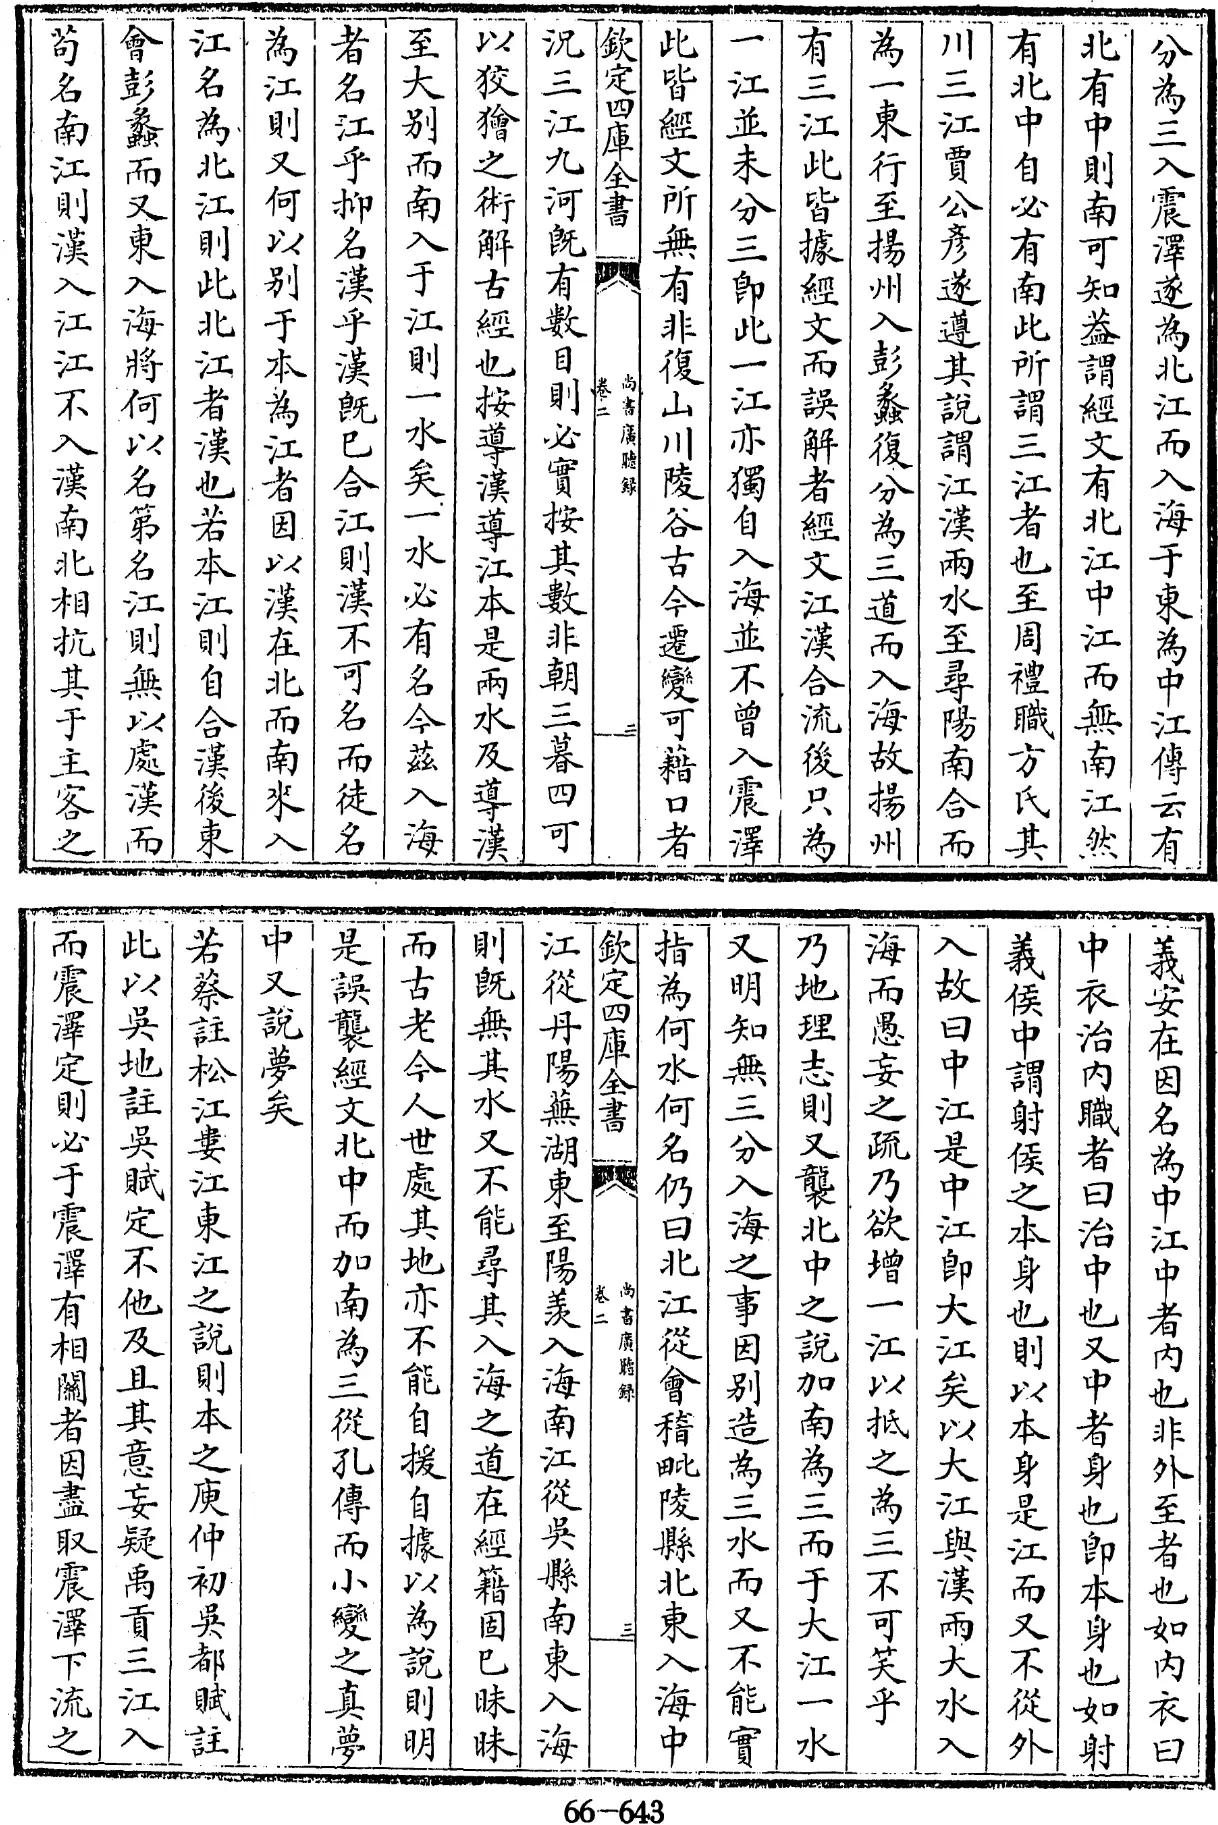 分為三入震澤遂為北江而入海于東為中江傳云有
北有中則南可知葢謂經文有北江中江而無南江然
有北中自必有南此所謂三江者也至周禮職方氏其
川三江賈公彥遂遵其說謂江漢兩水至尋陽南合而
為一東行至揚州入彭蠡復分為三道而入海故揚州
有三江此皆據經文而誤解者經文江漢合流後只為
一江並未分三卽此一江亦獨自入海並不曾入震澤
此皆經文所無有非復山川陵谷古今遷變可藉口者
欽定四庫全書
尚書廣聽録
卷二
二
況三江九河旣有數目則必實按其數非朝三暮四可
以狡獪之術解古經也按導漢導江本是兩水及導漢
至大别而南入于江則一水矣一水必有名今茲入海
者名江乎抑名漢乎漢旣已合江則漢不可名而徒名
為江則又何以别于本為江者因以漢在北而南來入
江名為北江則此北江者漢也若本江則自合漢後東
會彭蠡而又東入海將何以名第名江則無以處漢而
苟名南江則漢入江江不入漢南北相抗其于主客之
義安在因名為中江中者內也非外至者也如內衣曰
中衣治內職者曰治中也又中者身也卽本身也如射
義侯中謂射侯之本身也則以本身是江而又不從外
入故曰中江是中江卽大江矣以大江與漢兩大水入
海而愚妄之疏乃欲增一江以抵之為三不可笑乎
乃地理志則又襲北中之說加南為三而于大江一水
又明知無三分入海之事因别造為三水而又不能實
指為何水何名仍曰北江從會稽毗陵縣北東入海中
欽定四庫全書
尚書廣聽録
卷二
三
江從丹陽蕪湖東至陽羨入海南江從吳縣南東入海
則旣無其水又不能尋其入海之道在經籍固已昧昧
而古老今人世處其地亦不能自援自據以為說則明
是誤襲經文北中而加南為三從孔傳而小變之真夢
中又說夢矣
若蔡註松江婁江東江之說則本之庾仲初吳都賦註
此以吳地註吳賦定不他及且其意妄疑禹貢三江入
而震澤定則必于震澤有相關者因盡取震澤下流之
66-643